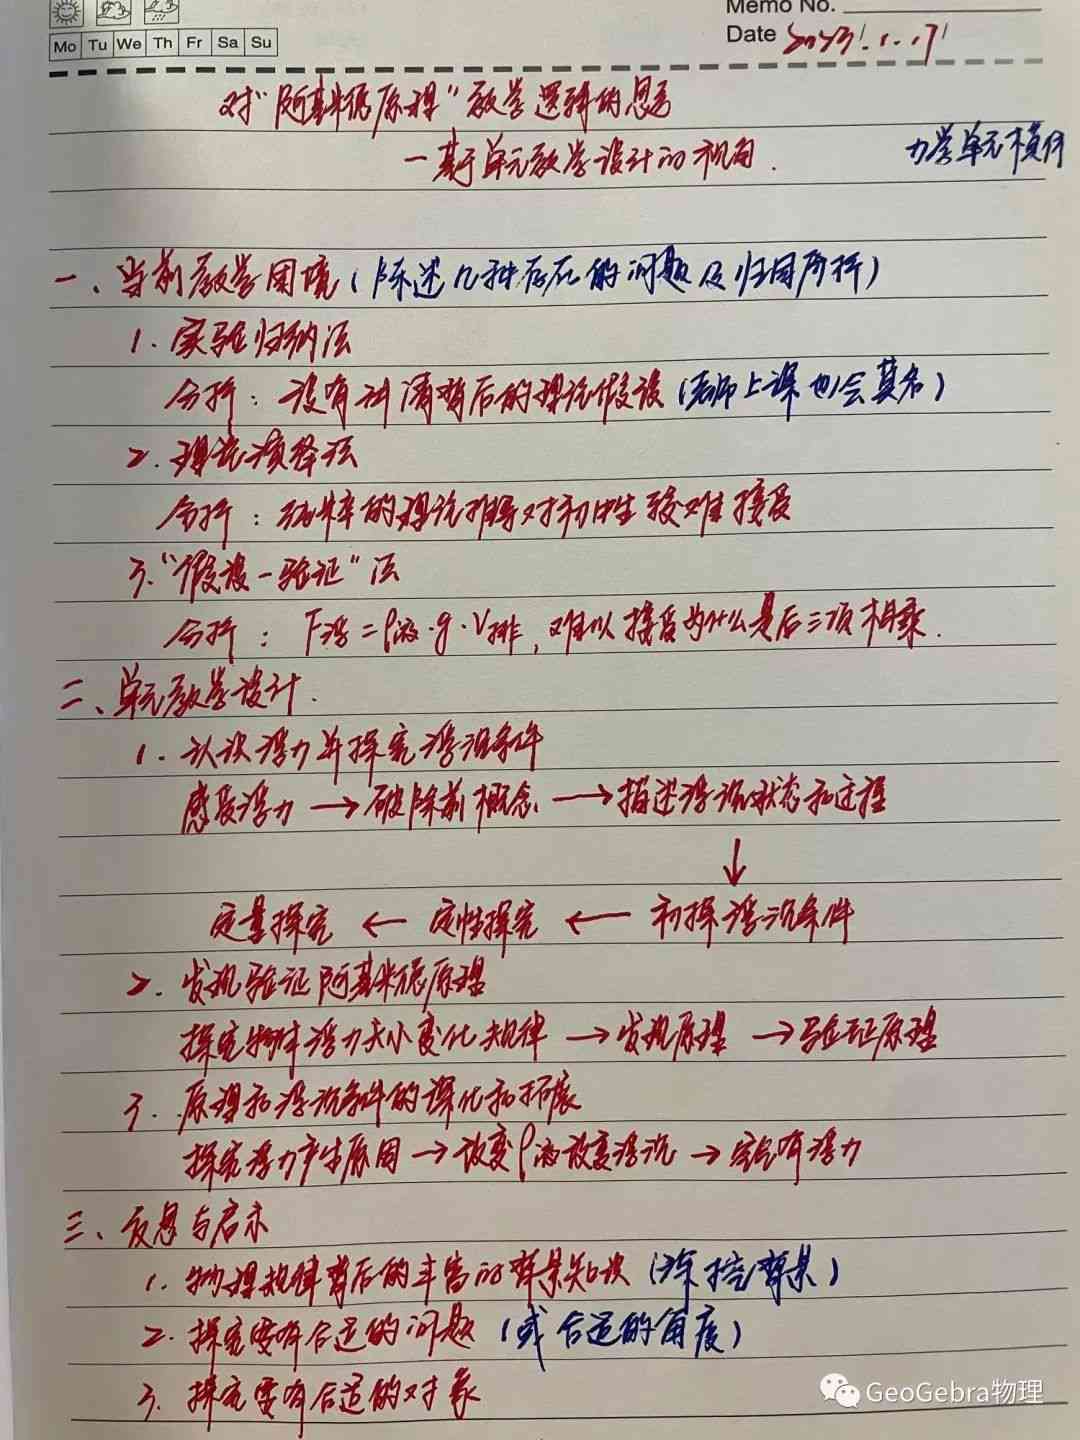 Memo No.
Mo Tu We Th Fr Sa Su
Date 2023/.1.17/
对“阿基米德原理”教学逻辑的思考
—基于单元教学设计的视角.
力学单元
一、当前教学困境(陈述几种存在的问题及归因分析)
1.实验归纳法
分析:没有讲清背后的理论假设(老师上课也会莫名)
2.理论演绎法
分析:的理论推导对初中生较难接受
3.“假设-验证”法
分析:F浮=ρ液·g·V排,难以接受为什么是后三项相乘.
二、单元教学设计.
1.认识浮力并探究浮沉条件
感受浮力→破除前概念→描述浮沉状态和过程
↓
定量探究←定性探究←初探浮沉条件
2.发现验证阿基米德原理
探究物体浮力大小变化规律→发现原理→验证原理
3.原理和浮沉条件的深化和拓展
探究浮力产生原因→改变ρ液改变浮沉→空气有浮力
三、反思与启示
1.物理规律背后的丰富的背景知识(深挖背景)
2.探究要有合适的问题(或合适的角度)
3.探究要有合适的对象
GeoGebra物理